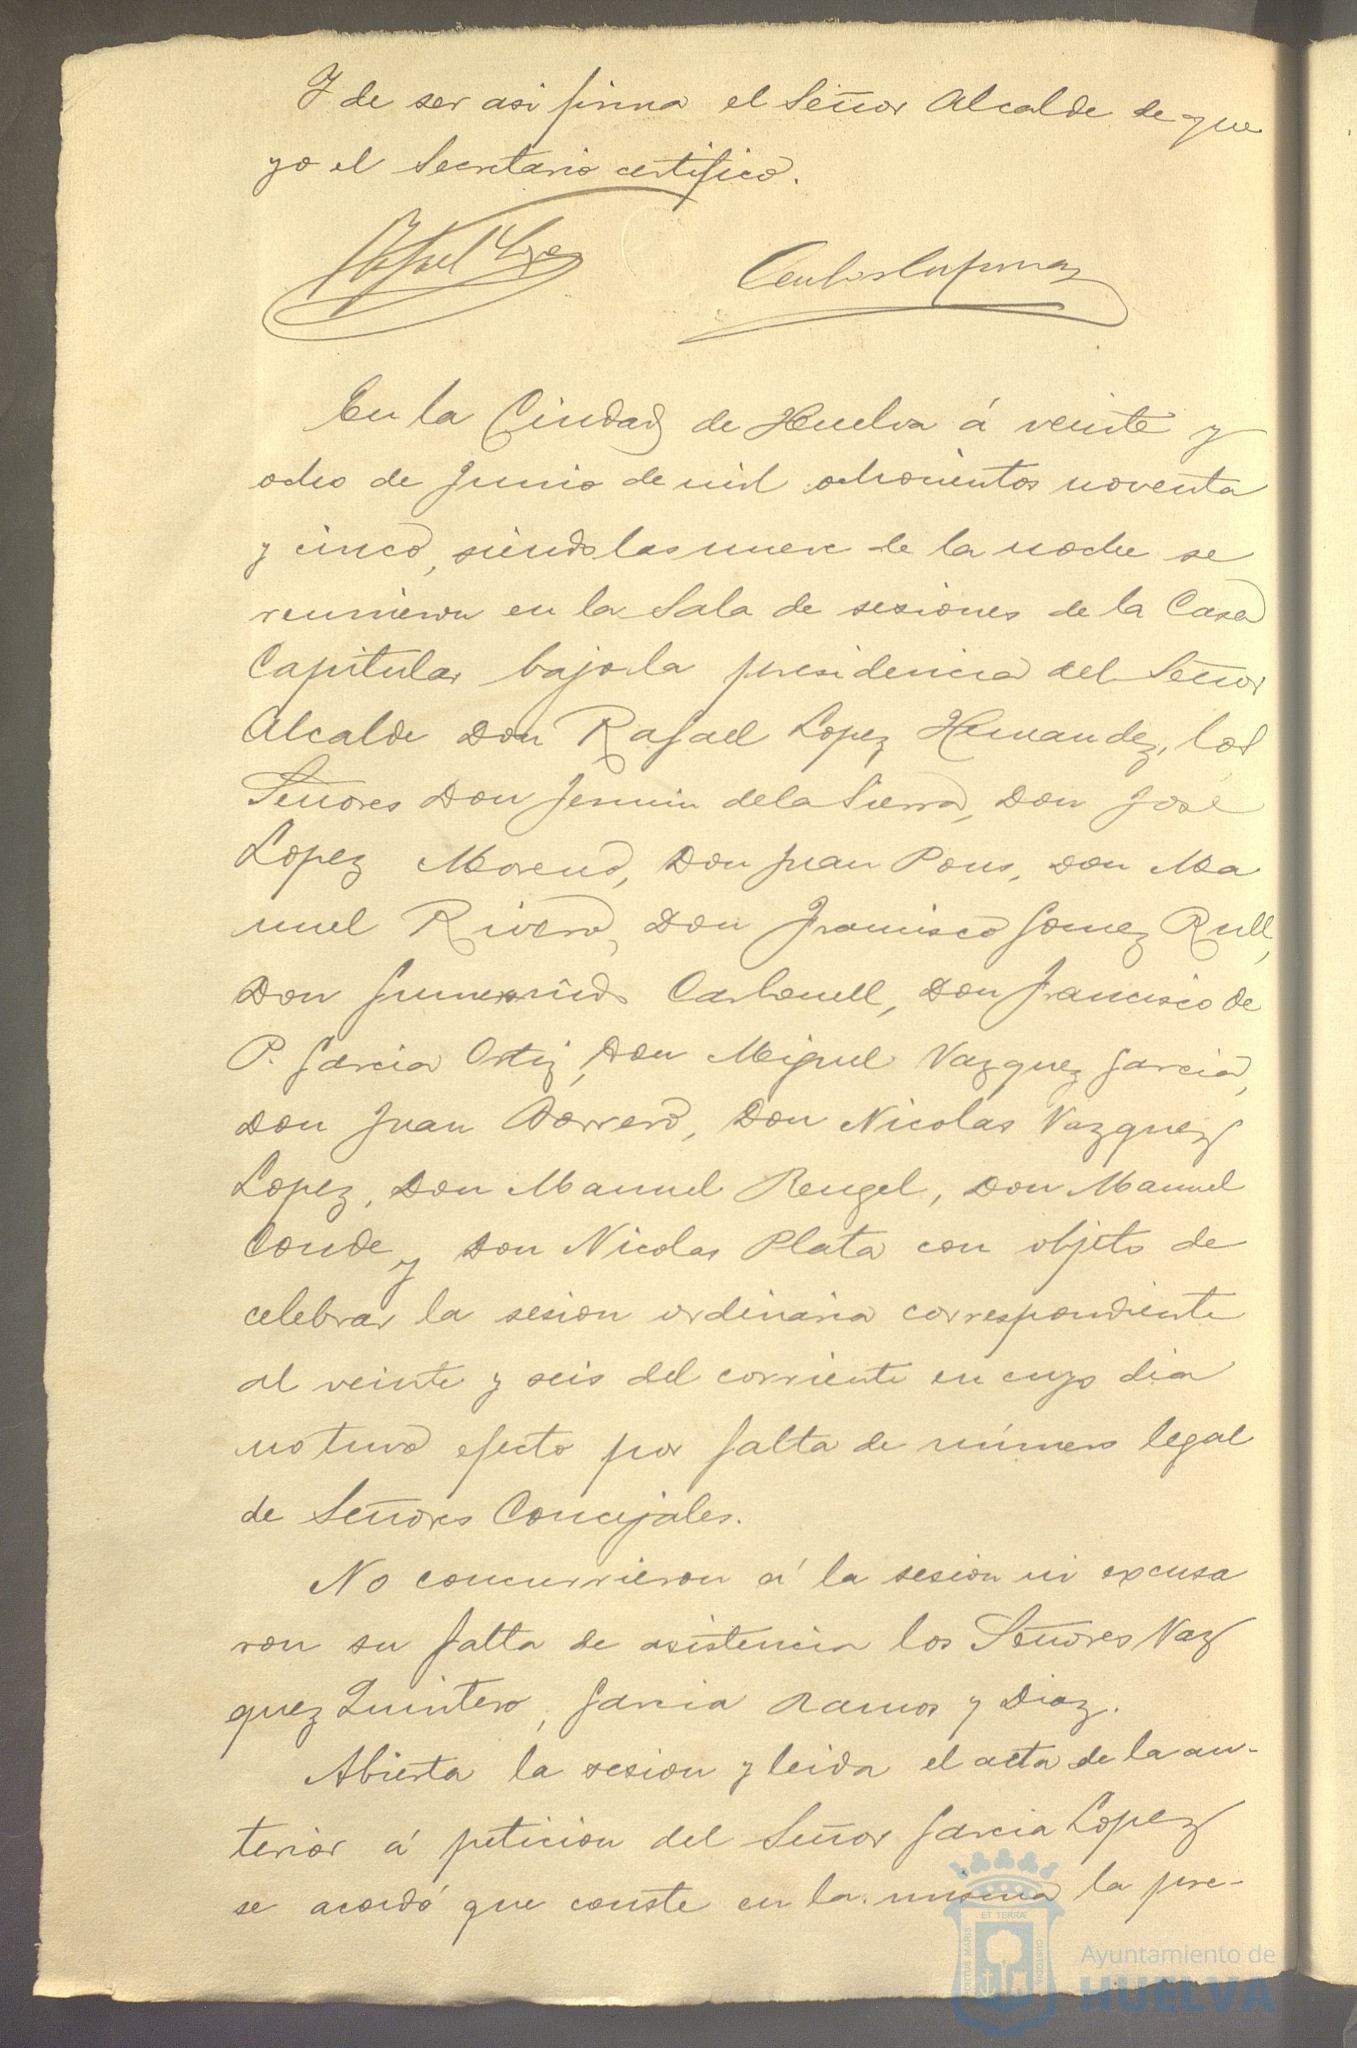 Y de ser asi firma el Señor Alcalde de que
yo el Secretario certifico.
Rafael Lopez
En la Ciudad de Huelva á veinte y
ocho de Junio de mil ochocientos noventa
y cinco, siendo las nueve de la noche se
reunieron en la Sala de sesiones de la Casa
Capitular bajo la presidencia del Señor
Alcalde Don Rafael Lopez Hernandez, los
Señores Don Fermin de la Sierra, Don José
Lopez Moreno, Don Juan Pons, Don Ma
nuel Rivero, Don Francisco Gomez Rull,
Don Gumersindo Carbonell, Don Francisco de
P. Garcia Ortiz, Don Miguel Vazquez Garcia,
Don Juan Borrero, Don Nicolas Vazquez
Lopez, Don Manuel Rengel, Don Manuel
Conde y Don Nicolas Plata con objeto de
celebrar la sesion ordinaria correspondiente
al veinte y seis del corriente en cuyo dia
no tuvo efecto por falta de número legal
de Señores Concejales.
No concurrieron á la sesion ni excusa
ron su falta de asistencia los Señores Vaz
quez Quintero, Garcia Ramos y Diaz.
Abierta la sesion y leida el acta de la an-
terior á peticion del Señor Garcia Lopez
se acordó que conste en la misma la pre-
PORTUS MARIS ET TERRÆ CUSTODIA
Ayuntamiento de
HUELVA